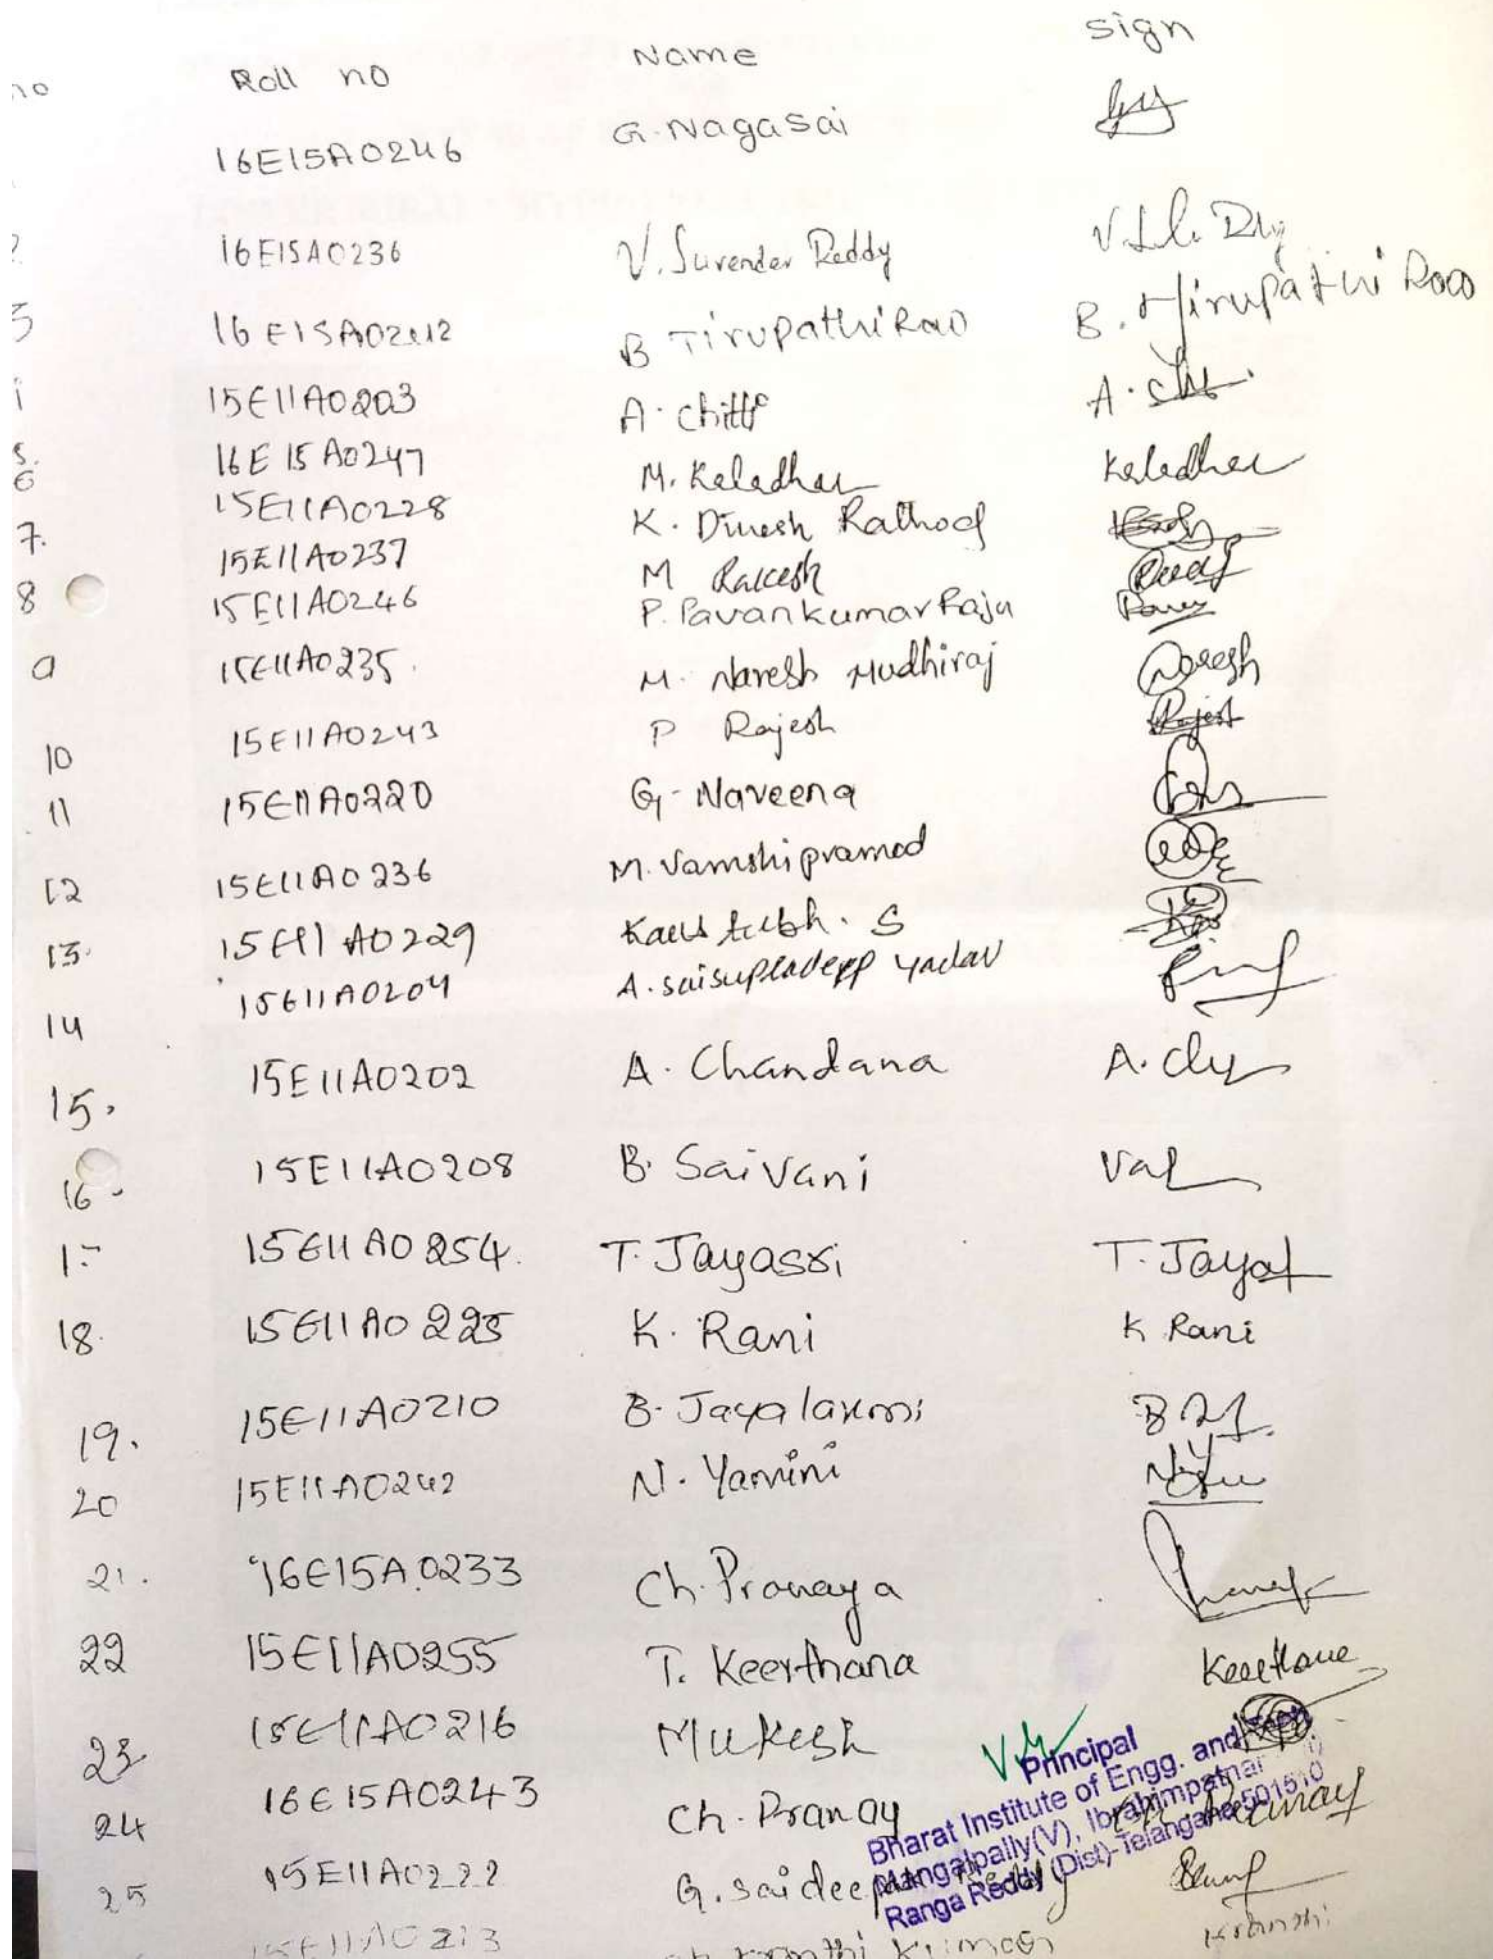 no Roll no Name Sign
16E15A0246 G. Nagasai
16E15A0236 V. Surender Reddy
3 16E15A0242 B Tirupathi Rao B. Tirupathi Rao
15E11A0203 A. Chitti A.
5. 16E15A0247 M. Keladhar Keladhar
6 15E11A0228 K. Dinesh Rathod
7. 15E11A0237 M Rakesh
8 15E11A0246 P. Pavan kumar Raju
9 15E11A0235. M. Naresh Mudhiraj Naresh
10 15E11A0243 P Rajesh Rajesh
11 15E11A0220 G. Naveena
12 15E11A0236 M. Vamshi pramod
13. 15E11A0229 Kaustubh. S
14 15E11A0204 A. saisupradeep yadav
15. 15E11A0202 A. Chandana A.
16. 15E11A0208 B. Sai Vani
15E11A0254. T. Jayasri T.
18. 15E11A0225 K. Rani K Rani
19. 15E11A0210 B. Jayalaxmi B
20 15E11A0242 N. Yamini
21. 16E15A0233 Ch. Pranaya
22 15E11A0255 T. Keerthana Keerthana
23 15E11A0216 Mukesh
24 16E15A0243 Ch. Pranay Ch. Pranay
25 15E11A0222 G. saideepak Reddy
15E11A0213 Ch kranthi Kumar Kranthi
Principal
Bharat Institute of Engg. and Tech
Mangalpally(V), Ibrahimpatnam
Ranga Reddy (Dist)-Telangana-501510